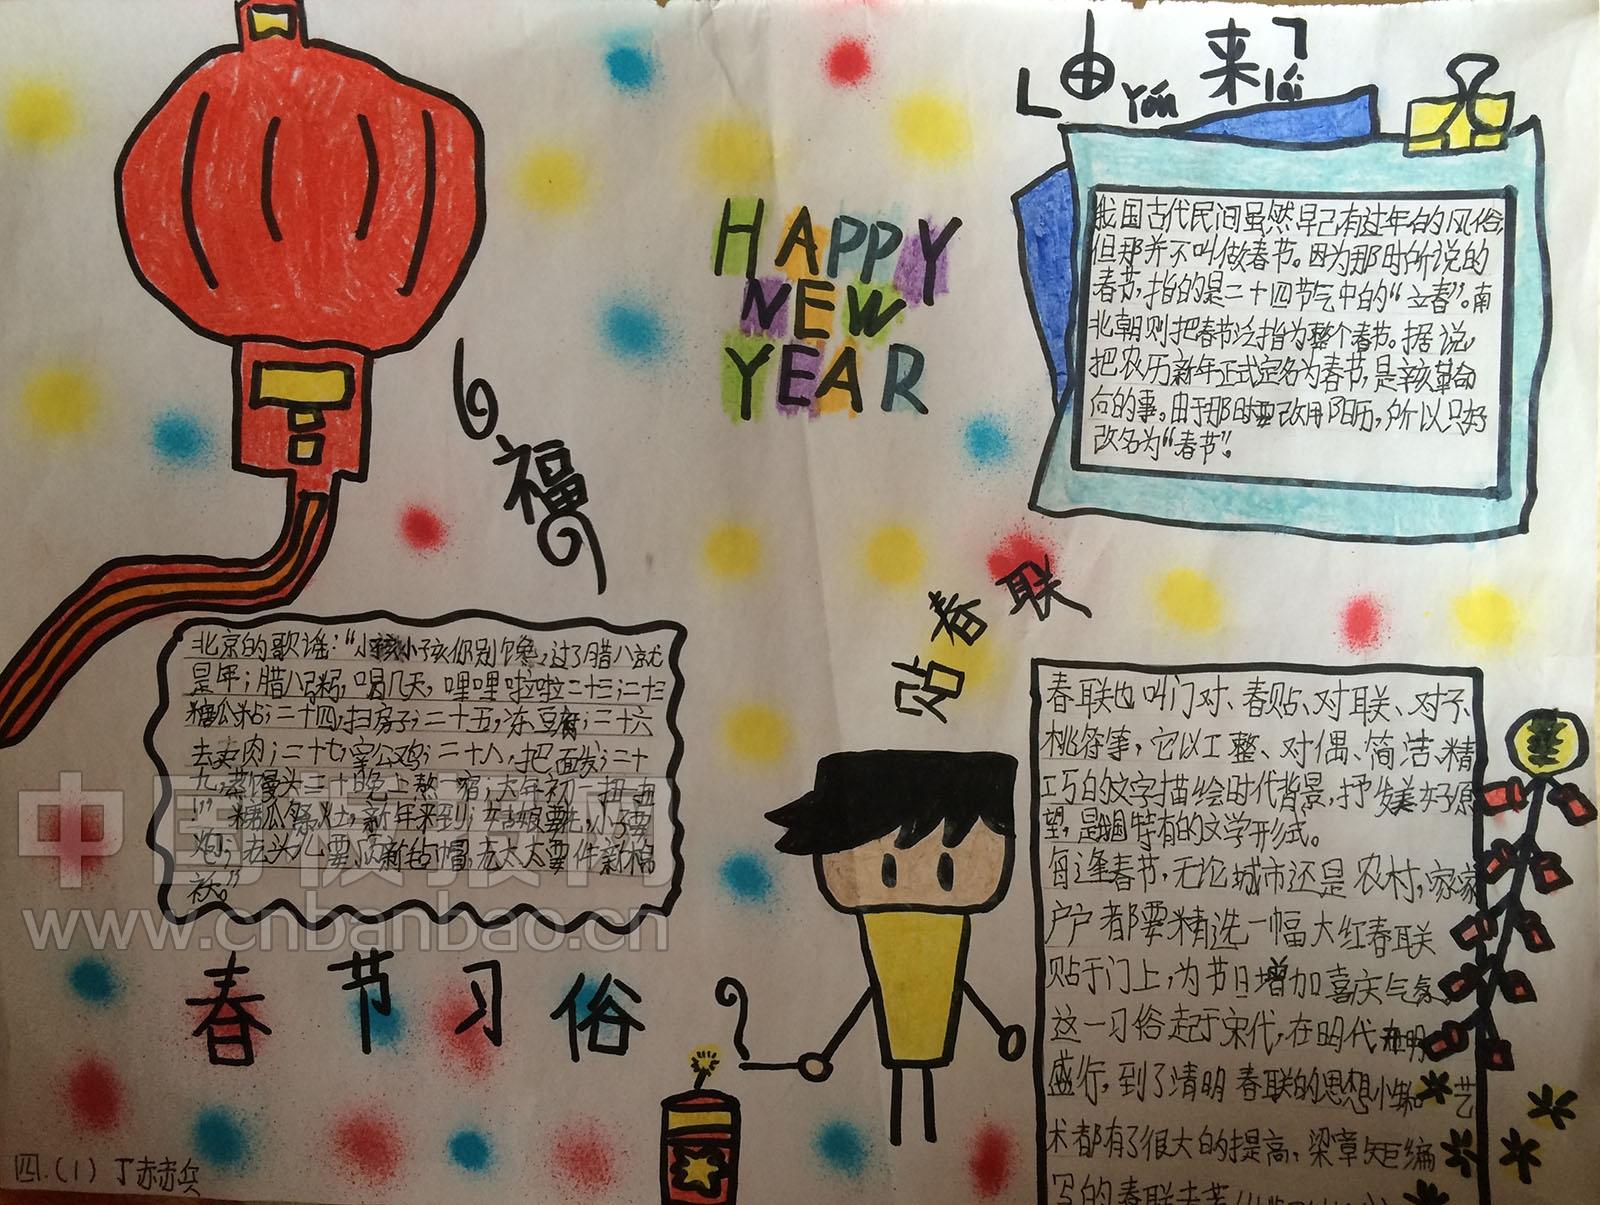 由来
Yóu lái
我国古代民间虽然早已有过年的风俗,
但那并不叫做春节。因为那时所说的
春节,指的是二十四节气中的“立春”。南
北朝则把春节泛指为整个春节。据说,
把农历新年正式定名为春节,是辛亥革命
后的事。由于那时要改用阳历,所以只好
改名为“春节”。
HAPPY
NEW
YEAR
福
北京的歌谣:“小孩小孩你别馋,过了腊八就
是年;腊八粥,喝几天,哩哩啦啦二十三;二十三
糖瓜粘;二十四,扫房子;二十五,冻豆腐;二十六
去卖肉;二十七,宰公鸡;二十八,把面发;二十
九,蒸馒头三十晚上熬一宿;大年初一扭一扭
!”糖瓜祭灶,新年来到;姑娘要花,小子要
炮;老头儿要 新毡帽,老太太要件新棉
袄。”
春节习俗
贴春联
春联也叫门对、春贴、对联、对子、
桃符等,它以工整、对偶、简洁、精
巧的文字描绘时代背景,抒发美好愿
望,是我国特有的文学形式。
每逢春节,无论城市还是农村,家家
户户都要精选一幅大红春联
贴于门上,为节日增加喜庆气氛。
这一习俗起于宋代,在明代
盛行,到了清明 春联的思想 艺
术都有了很大的提高,梁章矩编
写的春联
四.(1)丁赤赤兵
中国板报网
www.cnbanbao.cn